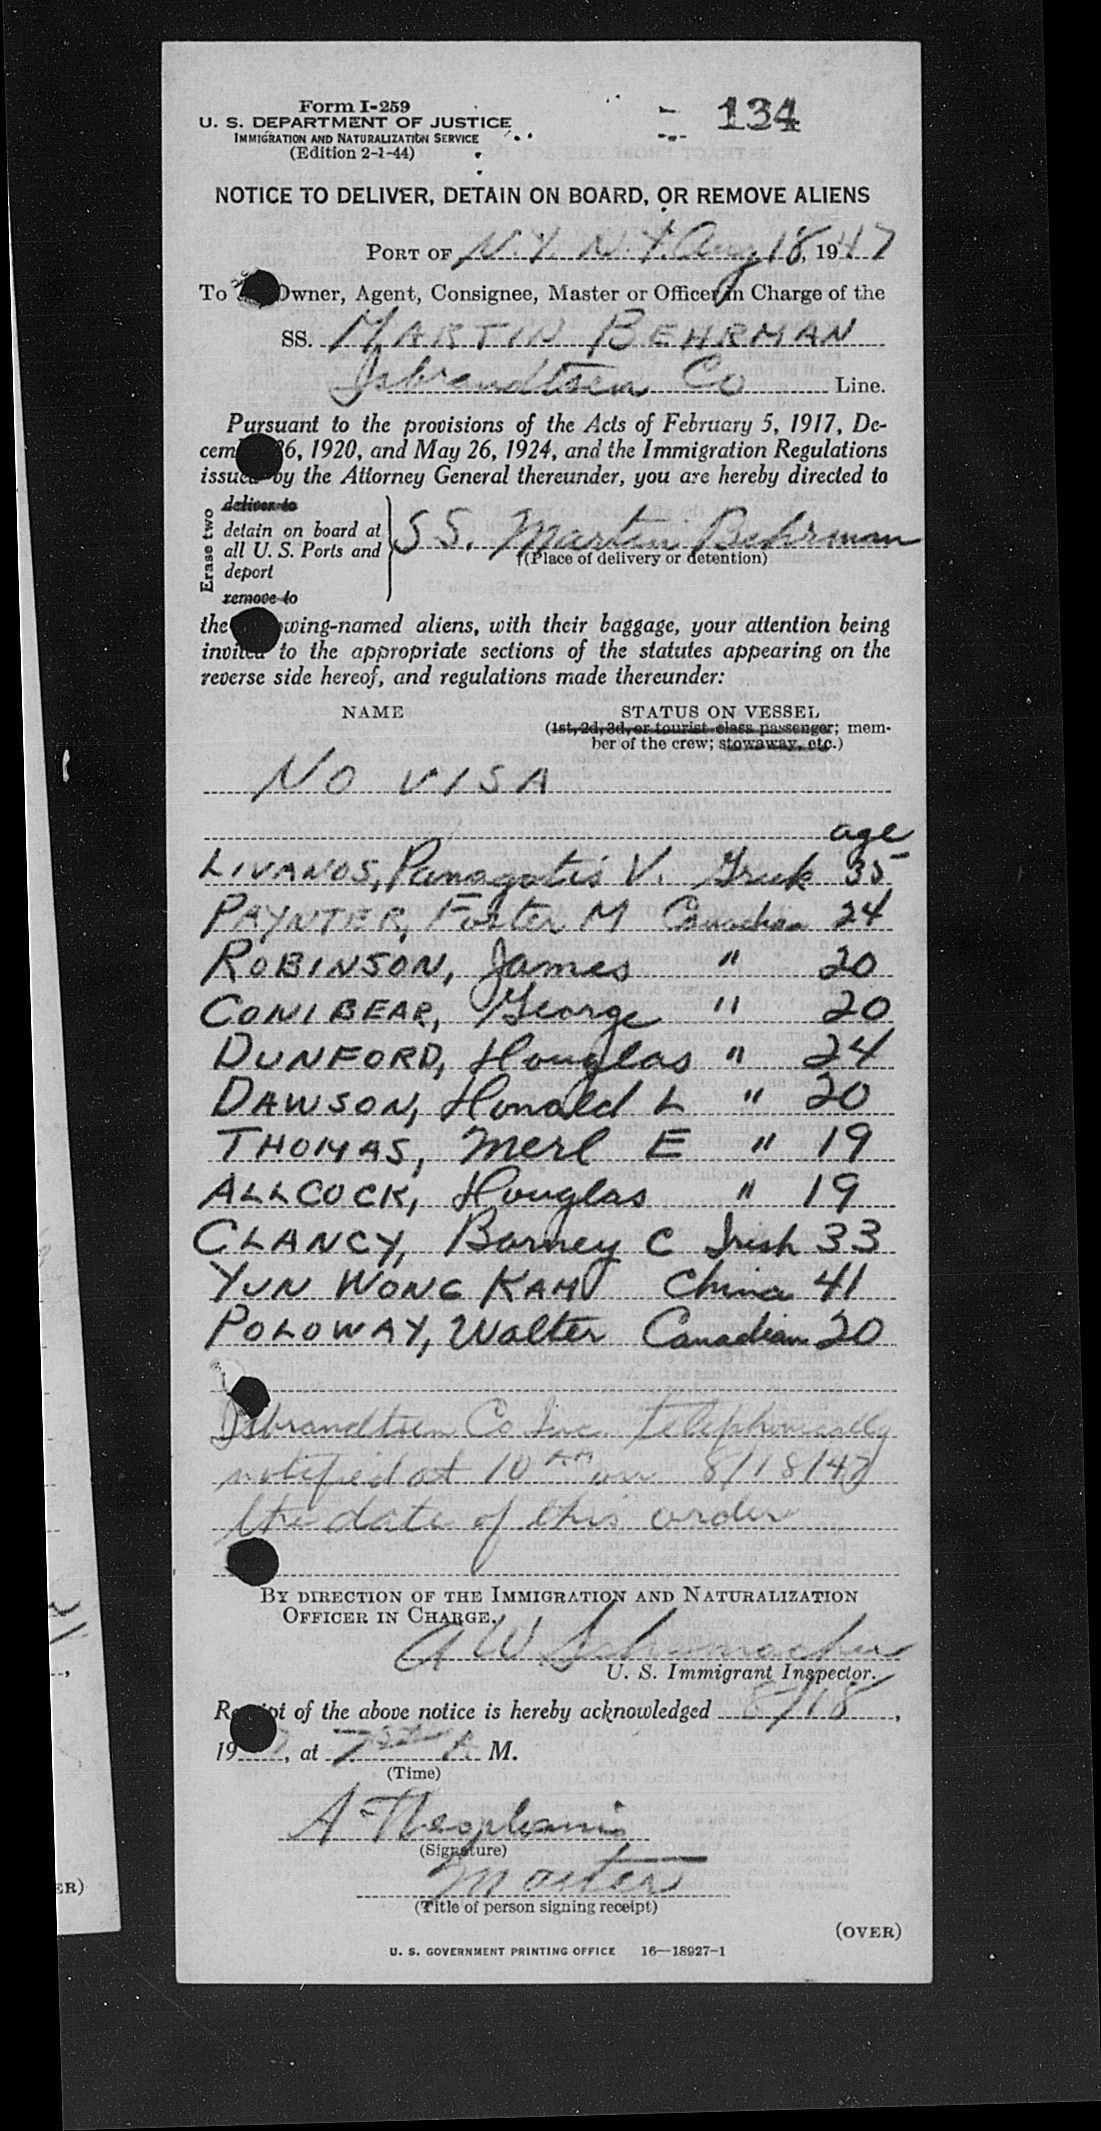 Form I-259
134
U. S. DEPARTMENT OF JUSTICE
IMMIGRATION AND NATURALIZATION SERVICE
(Edition 2-1-44)
NOTICE TO DELIVER, DETAIN ON BOARD, OR REMOVE ALIENS
PORT OF N.Y. N.Y. Aug 18, 1947
To Owner, Agent, Consignee, Master or Officer in Charge of the
SS. MARTIN BEHRMAN
Isbrandtsen Co Line.
Pursuant to the provisions of the Acts of February 5, 1917, De-
cem 26, 1920, and May 26, 1924, and the Immigration Regulations
issued by the Attorney General thereunder, you are hereby directed to
Erase two
deliver to
detain on board at
all U. S. Ports and
deport
remove to
SS. Martin Behrman
(Place of delivery or detention)
the owing-named aliens, with their baggage, your attention being
invited to the appropriate sections of the statutes appearing on the
reverse side hereof, and regulations made thereunder:
NAME STATUS ON VESSEL
(1st, 2d, 3d, or tourist class passenger; mem-
ber of the crew; stowaway, etc.)
NO VISA
age
LIVANOS, Panagotis V. Greek 35
PAYNTER, Foster M Canadian 24
ROBINSON, James " 20
CONIBEAR, George " 20
DUNFORD, Douglas " 24
DAWSON, Donald L " 20
THOMAS, Merl E " 19
ALLCOCK, Douglas " 19
CLANCY, Barney C Irish 33
YUN WONG KAM China 41
POLOWAY, Walter Canadian 20
Isbrandtsen Co Inc. telephonically
notified at 10 AM on 8/18/47
the date of this order
BY DIRECTION OF THE IMMIGRATION AND NATURALIZATION
OFFICER IN CHARGE.
A W Schumacher
U. S. Immigrant Inspector.
Receipt of the above notice is hereby acknowledged 8/18,
19 7, at 7 A M.
(Time)
A Theophanis
(Signature)
Master
(Title of person signing receipt)
(OVER)
U. S. GOVERNMENT PRINTING OFFICE 16—18927-1
ER)